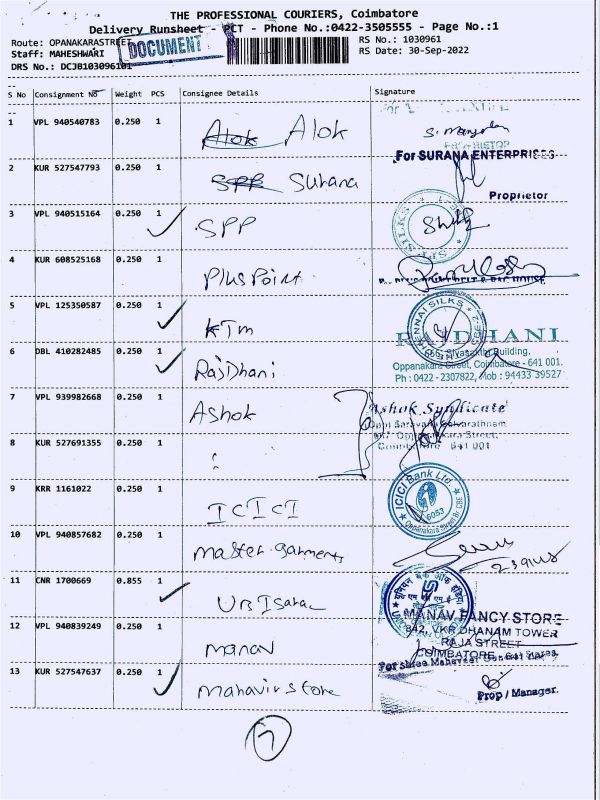 THE PROFESSIONAL COURIERS, Coimbatore
Delivery Runsheet - PCT - Phone No.:0422-3505555 - Page No.:1
Route: OPANAKARASTREET
RS No.: 1030961
Staff: MAHESHWARI
DOCUMENT
RS Date: 30-Sep-2022
DRS No.: DCJB103096101
S No Consignment NO Weight PCS Consignee Details Signature
1 VPL 940540783 0.250 1 Alok Alok
For SURANA ENTERPRISES
2 KUR 527547793 0.250 1 SPP Surana
Proprietor
3 VPL 940515164 0.250 1 SPP
SILKS
4 KUR 608525168 0.250 1 Plus Point
5 VPL 125350587 0.250 1 KTM
CHENNAI SILKS
RAJDHANI
6 DBL 410282485 0.250 1 RajDhani
Building,
Oppanakara Street, Coimbatore - 641 001.
Ph : 0422 - 2307822, Mob : 94433 39527
7 VPL 939982668 0.250 1 Ashok
Ashok Syndicate
8 KUR 527691355 0.250 1 :
641 001
9 KRR 1161022 0.250 1 ICICI
ICICI Bank Ltd.
6053
10 VPL 940857682 0.250 1 Master garments
11 CNR 1700669 0.855 1
MANAV FANCY STORE
842, VKR DHANAM TOWER
12 VPL 940839249 0.250 1 manav
RAJA STREET
COIMBATORE
13 KUR 527547637 0.250 1 Mahavir store
Prop / Manager.
7